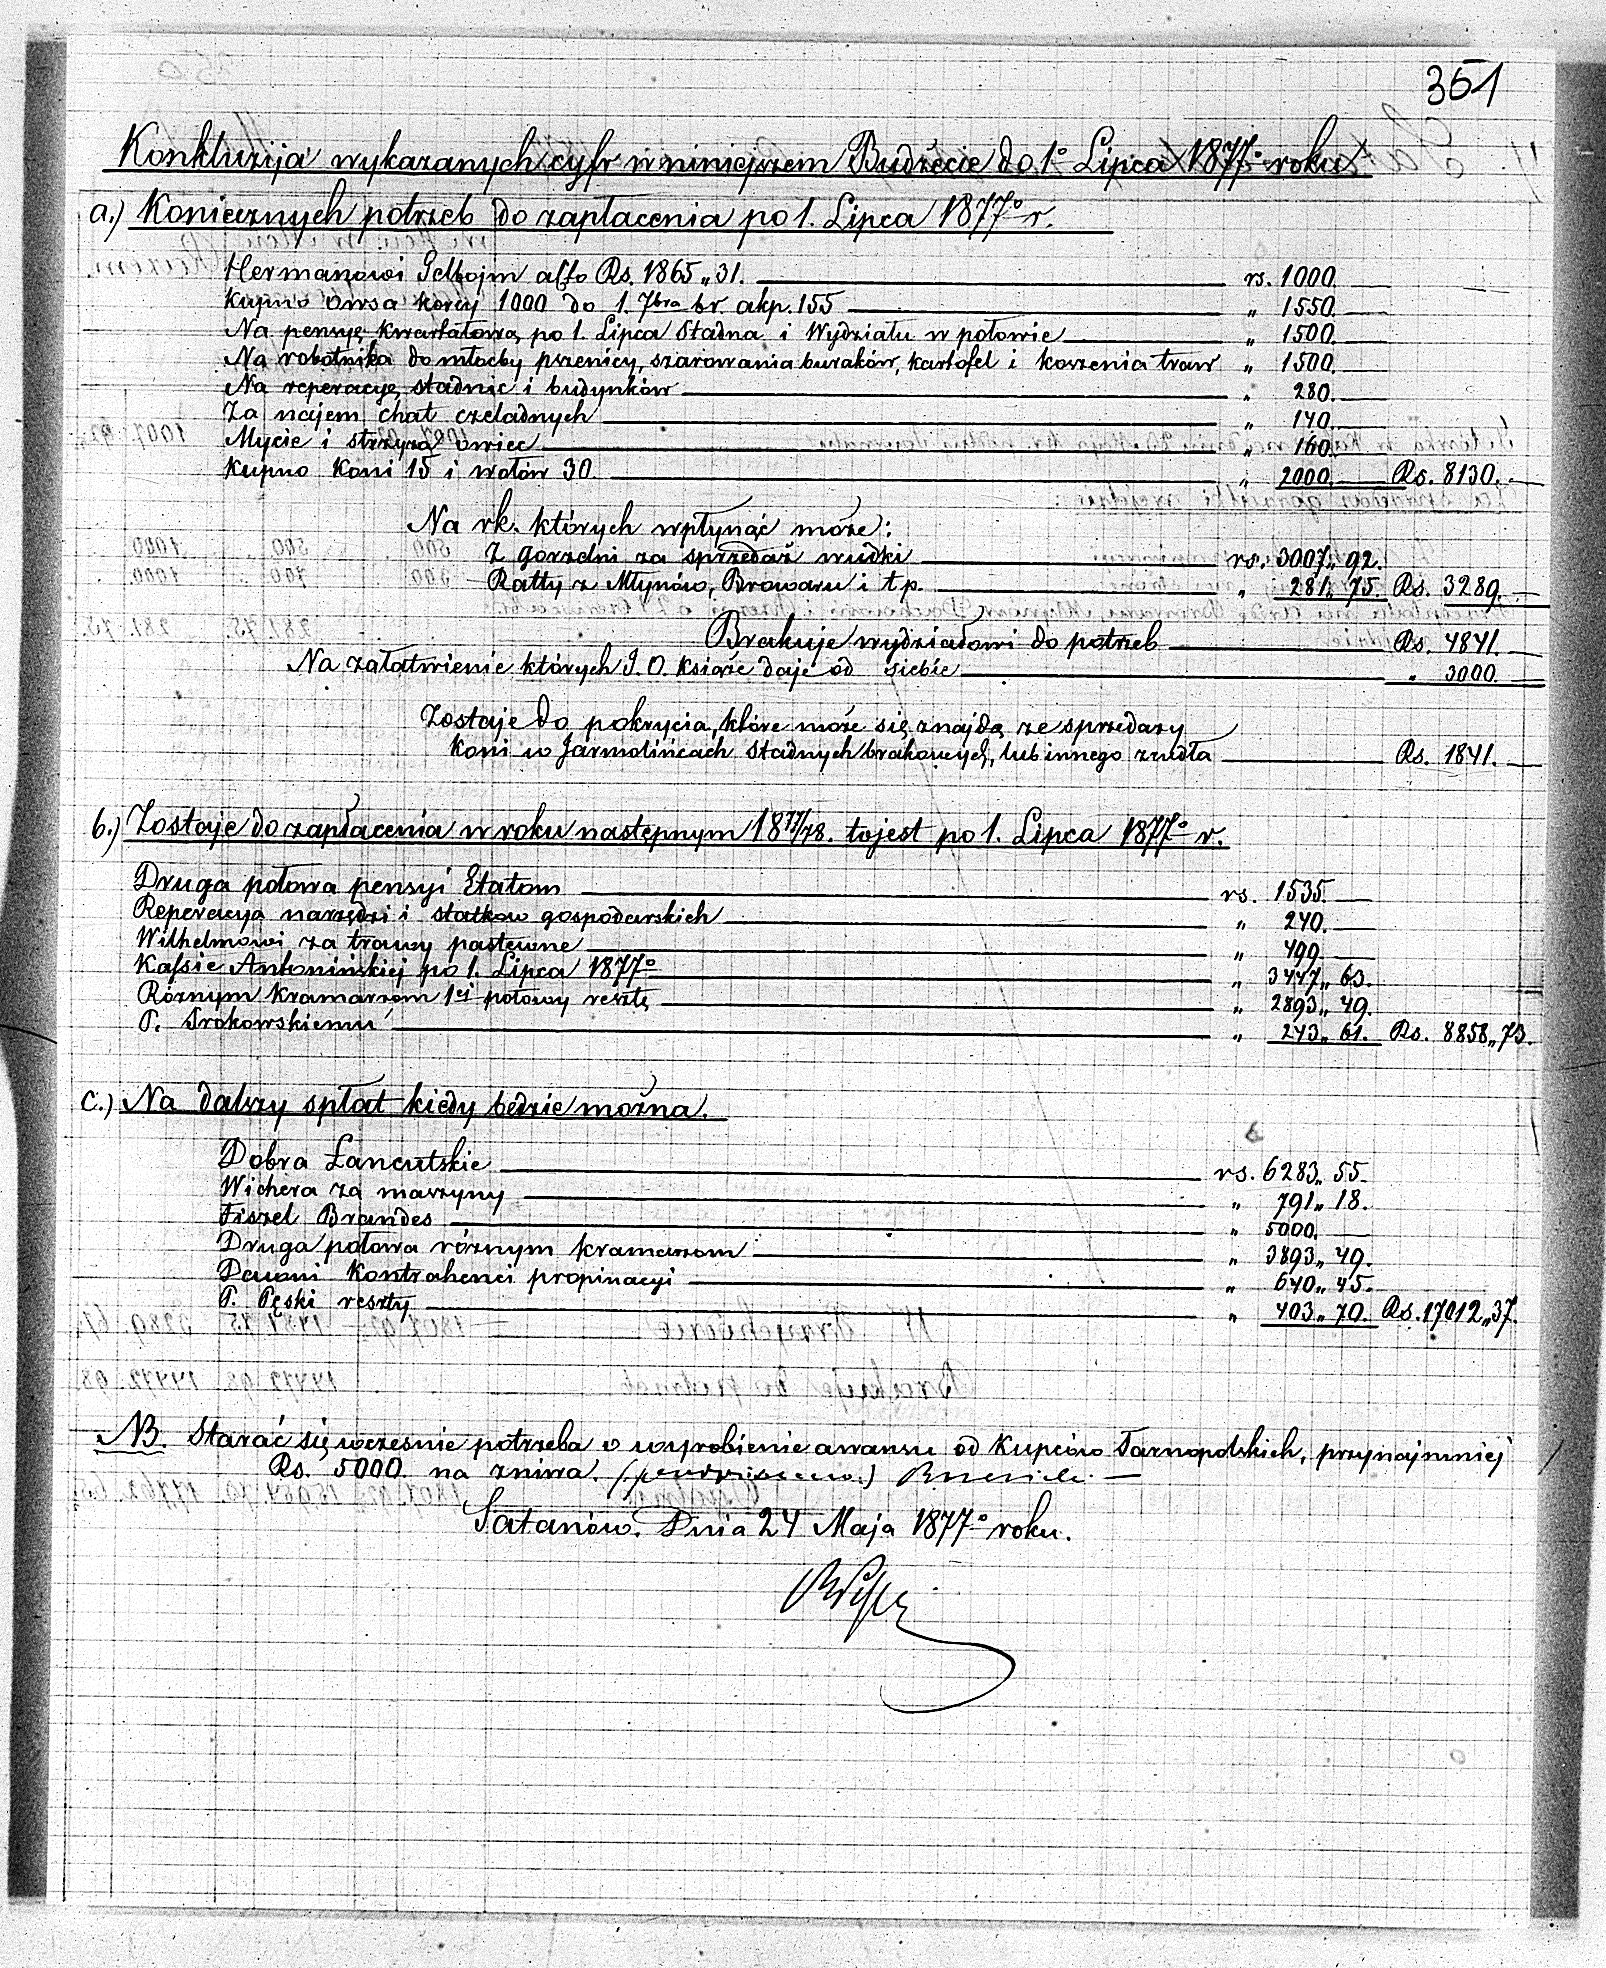 351
Konkluzija wykazanych cyfr w niniejszem Budżecie do 1º Lipca 1877º roku
a.) Koniecznych potrzeb do zapłacenia po 1. Lipca 1877º r.
Hermanowi Gelbojm a Rs. 1865„31. rs. 1000.
Kupno owsa korcy 1000 do 1. 7bra br. akp. 155 „ 1550.
Na pensyę kwartalową po 1. Lipca Stadna i Wydziału w połowie „ 1500.
Na robotnika do młocby pszenicy, szarowania buraków, kartofel i koszenia traw „ 1500.
Na reperacyę stadnic i budynków „ 280.
Za najem chat czeladnych „ 140.
Mycie i strzyża owiec „ 160.
Kupno Koni 15 i wołów 30. „ 2000. Rs. 8130.
Na rk. których wpłynąć może:
Z gorzelni za sprzedaż wudki rs. 3007„92.
Ratty z Młynów, Browaru i t p. „ 281„75. Rs. 3289.
Brakuje wydziałowi do potrzeb Rs. 4841.
Na załatwienie których J. O. Książe daje od siebie „ 3000.
Zostaje do pokrycia, które może się znajdą ze sprzedaży
Koni w Jarmolińcach Stadnych brakowych, lub innego zrudła Rs. 1841.
b.) Zostaje do zapłacenia w roku następnym 1877/78. tojest po 1. Lipca 1877º r.
Druga połowa pensyi Etatom rs. 1535.
Reperacya narzędzi i statkow gospodarskich „ 240.
Wilhelmowi za trawy pastewne „ 499
Kassie Antonińskiej po 1. Lipca 1877º „ 3447„63.
Róznym Kramarzom 1ej połowy resztę „ 2893„49.
P. Trokowskiemu „ 243„61. Rs. 8858„73.
c.) Na dalszy spłat kiedy będzie można.
Dobra Łancutskie rs. 6283„55.
Wichera za maszyny „ 791„18.
Fiszel Brandes „ 5000.
Druga połowa róznym kramarzom „ 3893„49.
Dawni Kontrahenci propinacyi „ 640„45.
P. Pęski reszty „ 403„70. Rs. 17012„37.
NB. Starać się wcześnie potrzeba o wyrobienie awansu od Kupców Tarnopolskich, przynajmniej
Rs. 5000 na zniwa.
Satanów. Dnia 24 Maja 1877º roku.